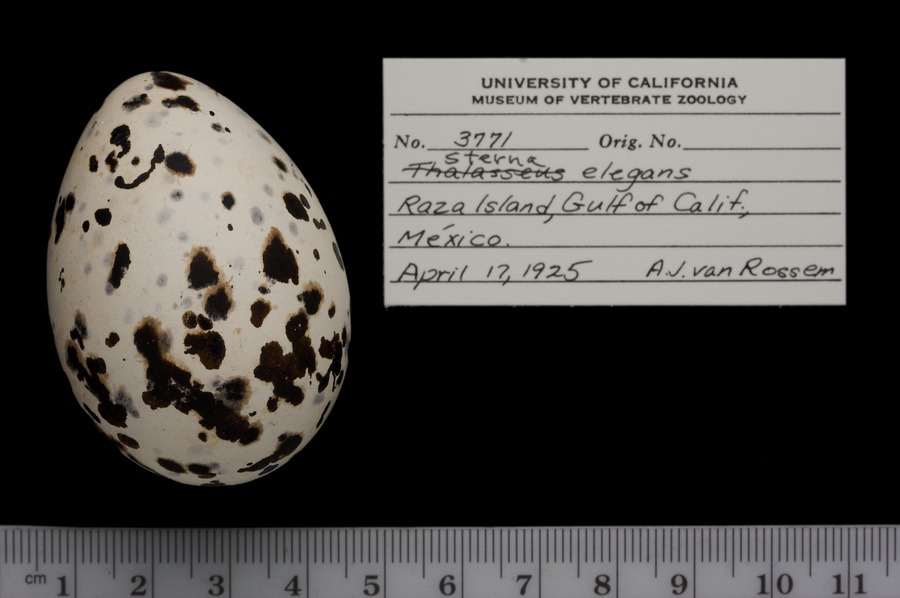 UNIVERSITY OF CALIFORNIA
MUSEUM OF VERTEBRATE ZOOLOGY
No. 3771 Orig. No.
Sterna
Thalasseus elegans
Raza Island, Gulf of Calif.,
México.
April 17, 1925 A.J. van Rossem
cm 1 2 3 4 5 6 7 8 9 10 11